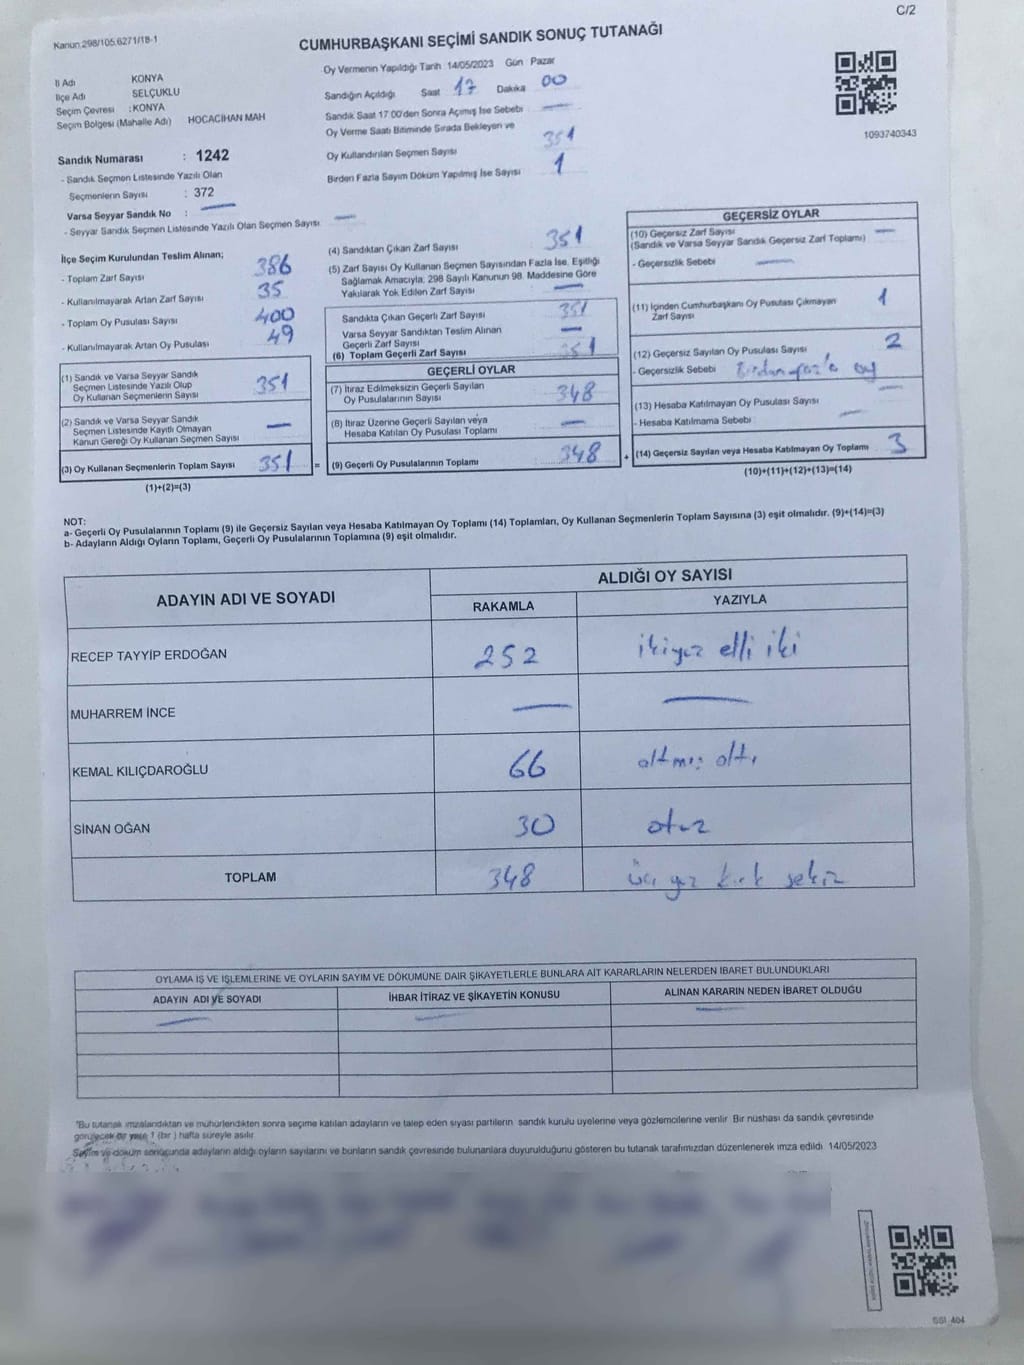 C/2
Kanun 298/105.6271/18-1
CUMHURBAŞKANI SEÇİMİ SANDIK SONUÇ TUTANAĞI
İl Adı KONYA
İlçe Adı SELÇUKLU
Seçim Çevresi : KONYA
Seçim Bölgesi (Mahalle Adı) HOCACİHAN MAH
Sandık Numarası : 1242
- Sandık Seçmen Listesinde Yazılı Olan
Seçmenlerin Sayısı : 372
Varsa Seyyar Sandık No : —
- Seyyar Sandık Seçmen Listesinde Yazılı Olan Seçmen Sayısı —
Oy Vermenin Yapıldığı Tarih 14/05/2023 Gün Pazar
Sandığın Açıldığı Saat 17 Dakika 00
Sandık Saat 17.00'den Sonra Açımış İse Sebebi —
Oy Verme Saati Bitiminde Sırada Bekleyen ve
Oy Kullandırılan Seçmen Sayısı 351
Birden Fazla Sayım Döküm Yapılmış İse Sayısı 1
1093740343
İlçe Seçim Kurulundan Teslim Alınan;
- Toplam Zarf Sayısı 386
- Kullanılmayarak Artan Zarf Sayısı 35
- Toplam Oy Pusulası Sayısı 400
- Kullanılmayarak Artan Oy Pusulası 49
(1) Sandık ve Varsa Seyyar Sandık
Seçmen Listesinde Yazılı Olup
Oy Kullanan Seçmenlerin Sayısı 351
(2) Sandık ve Varsa Seyyar Sandık
Seçmen Listesinde Kayıtlı Olmayan
Kanun Gereği Oy Kullanan Seçmen Sayısı —
(3) Oy Kullanan Seçmenlerin Toplam Sayısı 351 =
(1)+(2)=(3)
(4) Sandıktan Çıkan Zarf Sayısı 351
(5) Zarf Sayısı Oy Kullanan Seçmen Sayısından Fazla İse, Eşitliği
Sağlamak Amacıyla, 298 Sayılı Kanunun 98. Maddesine Göre
Yakılarak Yok Edilen Zarf Sayısı —
Sandıkta Çıkan Geçerli Zarf Sayısı 351
Varsa Seyyar Sandıktan Teslim Alınan
Geçerli Zarf Sayısı —
(6) Toplam Geçerli Zarf Sayısı 351
GEÇERLİ OYLAR
(7) İtiraz Edilmeksizin Geçerli Sayılan
Oy Pusulalarının Sayısı 348
(8) İtiraz Üzerine Geçerli Sayılan veya
Hesaba Katılan Oy Pusulası Toplamı —
(9) Geçerli Oy Pusulalarının Toplamı 348 +
GEÇERSİZ OYLAR
(10) Geçersiz Zarf Sayısı —
(Sandık ve Varsa Seyyar Sandık Geçersiz Zarf Toplamı)
- Geçersizlik Sebebi —
(11) İçinden Cumhurbaşkanı Oy Pusulası Çıkmayan
Zarf Sayısı 1
(12) Geçersiz Sayılan Oy Pusulası Sayısı 2
- Geçersizlik Sebebi Birden fazla oy
(13) Hesaba Katılmayan Oy Pusulası Sayısı —
- Hesaba Katılmama Sebebi —
(14) Geçersiz Sayılan veya Hesaba Katılmayan Oy Toplamı 3
(10)+(11)+(12)+(13)=(14)
NOT:
a- Geçerli Oy Pusulalarının Toplamı (9) ile Geçersiz Sayılan veya Hesaba Katılmayan Oy Toplamı (14) Toplamları, Oy Kullanan Seçmenlerin Toplam Sayısına (3) eşit olmalıdır. (9)+(14)=(3)
b- Adayların Aldığı Oyların Toplamı, Geçerli Oy Pusulalarının Toplamına (9) eşit olmalıdır.
ADAYIN ADI VE SOYADI ALDIĞI OY SAYISI
RAKAMLA YAZIYLA
RECEP TAYYİP ERDOĞAN 252 ikiyüz elli iki
MUHARREM İNCE — —
KEMAL KILIÇDAROĞLU 66 altmış altı
SİNAN OĞAN 30 otuz
TOPLAM 348 üç yüz kırk sekiz
OYLAMA İŞ VE İŞLEMLERİNE VE OYLARIN SAYIM VE DÖKÜMÜNE DAİR ŞİKAYETLERLE BUNLARA AİT KARARLARIN NELERDEN İBARET BULUNDUKLARI
ADAYIN ADI VE SOYADI İHBAR İTİRAZ VE ŞİKAYETİN KONUSU ALINAN KARARIN NEDEN İBARET OLDUĞU
— — —
*Bu tutanak imzalandıktan ve mühürlendikten sonra seçime katılan adayların ve talep eden siyasi partilerin sandık kurulu üyelerine veya gözlemcilerine verilir Bir nüshası da sandık çevresinde
görülecek bir yere 1 (bir ) hafta süreyle asılır
Sayım ve döküm sonucunda adayların aldığı oyların sayılarını ve bunların sandık çevresinde bulunanlara duyurulduğunu gösteren bu tutanak tarafımızdan düzenlenerek imza edildi 14/05/2023